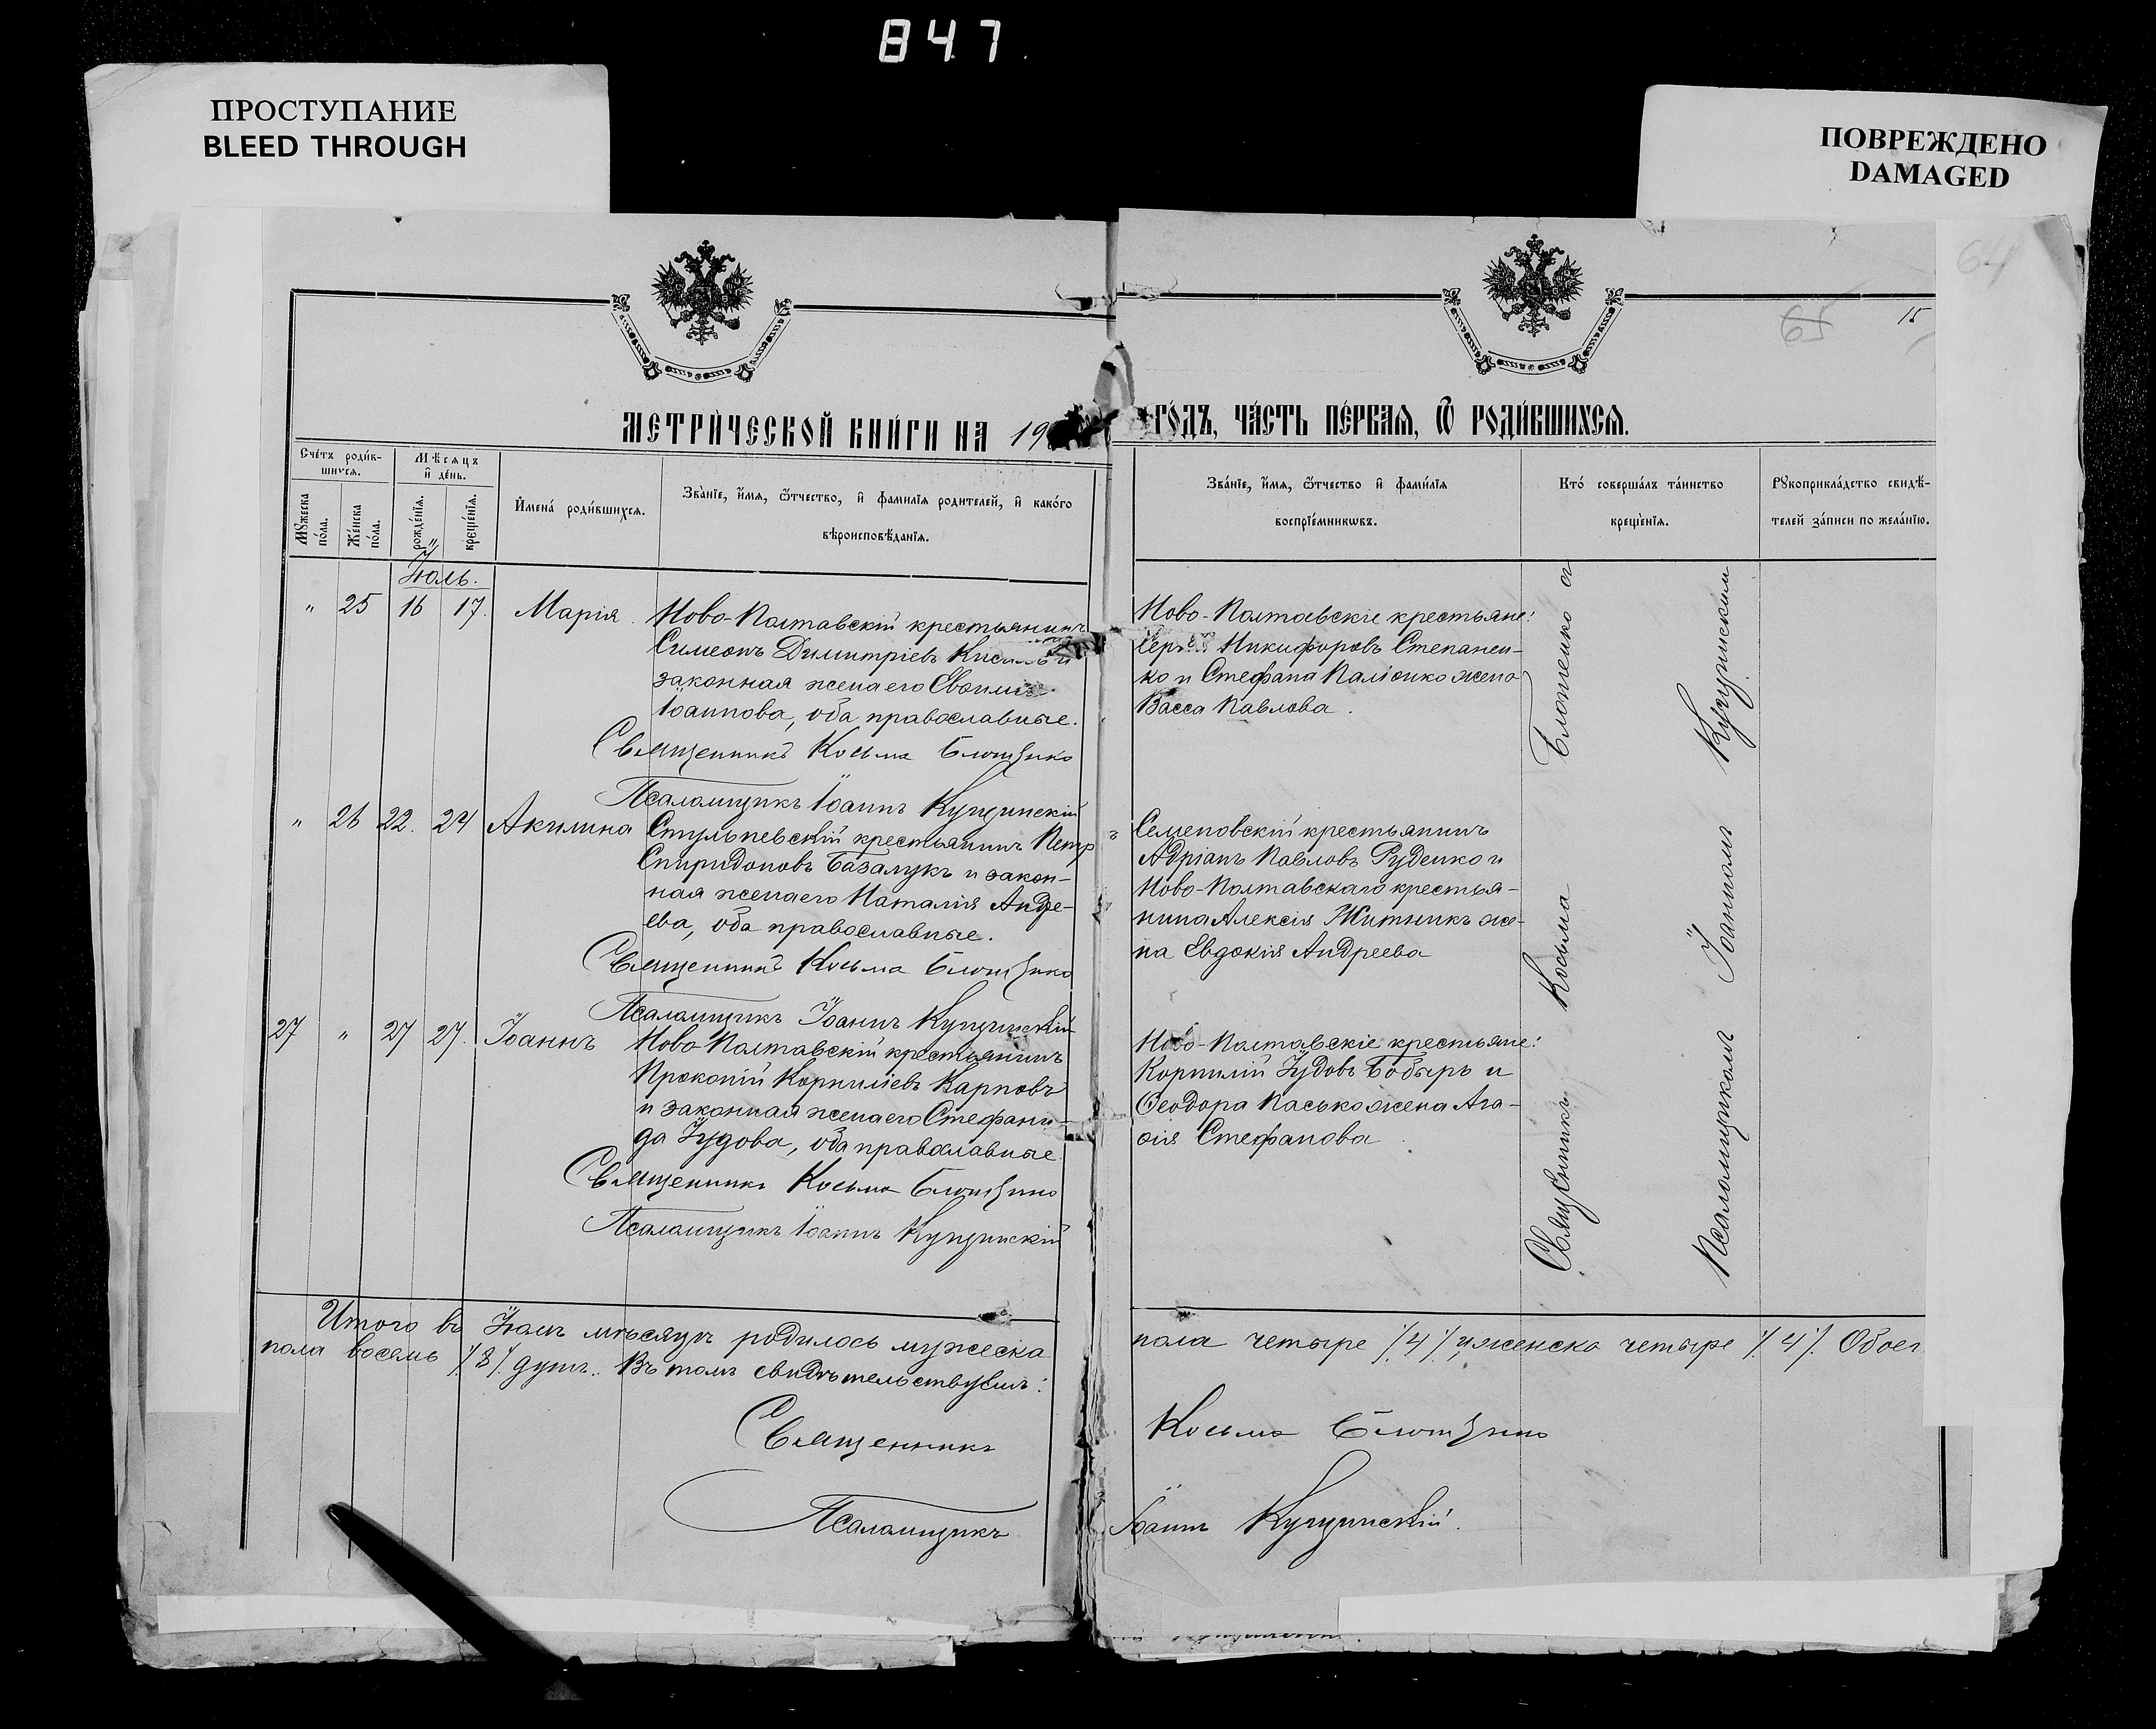 847
ПРОСТУПАНИЕ
BLEED THROUGH
ПОВРЕЖДЕНО
DAMAGED
64
65
15
МЕТРИ́ЧЕСКОЙ КНИ́ГИ НА 19
ГО́ДЪ, ЧА́СТЬ ПЕ́РВАѦ, Ѿ РОДИ́ВШИХСѦ.
Сче́тъ роди́в-
шихся.
Мѣ́сяцъ
и҆ де́нь.
Мꙋ́жеска
по́ла.
Же́нска
по́ла.
рожде́нїѧ.
креще́нїѧ.
И҆мена̀ роди́вшихсѧ.
Зва́нїе, и҆́мѧ, ѻ҆́тчество, и҆ фами́лїѧ роди́телей, и҆ како́го
вѣроисповѣ́данїѧ.
Зва́нїе, и҆́мѧ, ѻ҆́тчество и҆ фами́лїѧ
воспрїе́мникѡвъ.
Кто́ соверша́лъ та́инство
креще́нїѧ.
Рꙋкоприкла́дство свидѣ́-
телей за́писи по жела́нїю.
Іюль.
" 25 16 17. Марія.
Ново-Полтавскій крестьянинъ
Симеонъ Димитріевъ и
законная жена его
Іоаннова, оба православные.
Священникъ Косьма Блотенко
Псаломщикъ Іоаннъ
Ново-Полтавскіе крестьяне:
Никифоровъ Степанен-
ко и Стефана жена
Васса Павлова.
" 26 22. 24 Акилина
крестьянинъ Петр
ъ
Спиридоновъ Базалукъ и закон-
ная жена его Наталія Андре-
ева, оба православные.
Священникъ Косьма Блотенко
Псаломщикъ Іоаннъ
Семеновскій крестьянинъ
Адріанъ Павловъ Руденко и
Ново-Полтавскаго крестья-
нина Алексія Житникъ же-
на Евдокія Андреева
27 " 27 27. Іоаннъ
Ново-Полтавскій крестьянинъ
Прокопій Корниліевъ Карповъ
и законная жена его Стефани-
да Іудова, оба православные.
Священникъ Косьма Блотенко
Псаломщикъ Іоаннъ
Ново-Полтавскіе крестьяне:
Корнилій Іудовъ Бобырь и
Ѳеодора Пасько жена Ага-
ѳія Стефанова
Священникъ Косьма Блотенко съ
Псаломщикомъ Іоанномъ
Итого въ Іюлѣ мѣсяцѣ родилось мужеска
пола четыре /4/ и женска четыре /4/. Обоег
пола восемь /8/ душъ. Въ томъ свидѣтельствуемъ:
Священникъ
Косьма Блотенко
Псаломщикъ
Іоаннъ